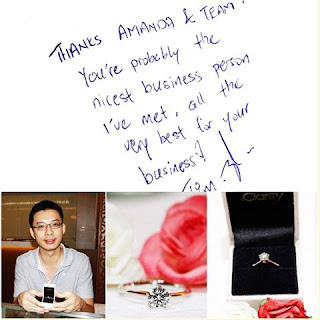 THANKS AMANDA & TEAM!
You're probably the
nicest business person
I've met, all the
very best for your
business!
Tom
Clarity